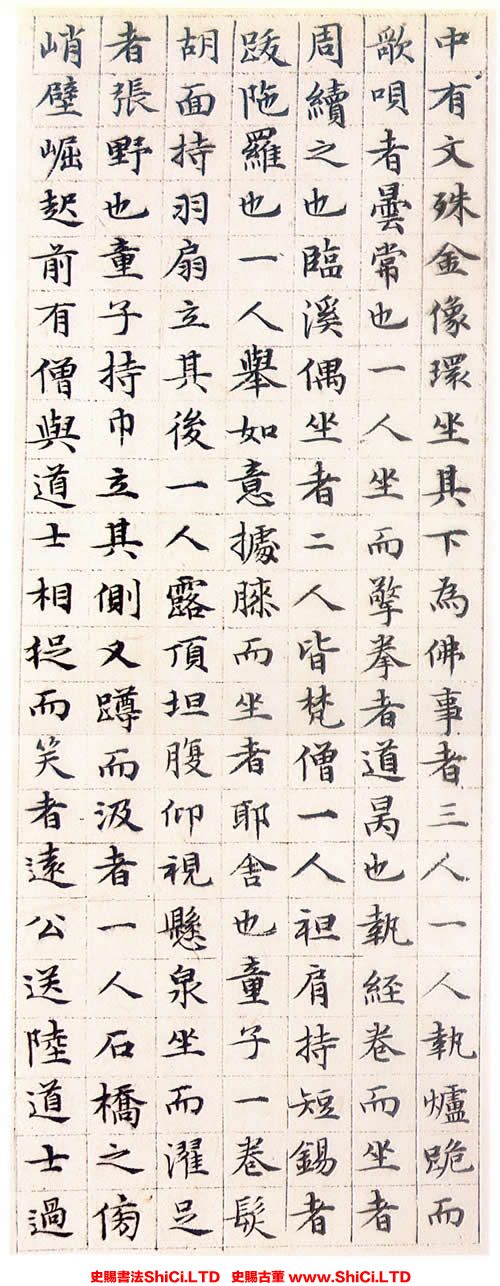 中有文殊金像環坐其下為佛事者三人一人執爐跪而
歌唄者曇常也一人坐而擎拳者道昺也執經卷而坐者
周續之也臨溪偶坐者二人皆梵僧一人袒肩持短錫者
跋陁羅也一人舉如意據膝而坐者耶舍也童子一卷髮
胡面持羽扇立其後一人露頂坦腹仰視懸泉坐而濯足
者張野也童子持巾立其側又蹲而汲者一人石橋之傍
峭壁崛起前有僧與道士相捉而笑者遠公送陸道士過
史賜書法ShiCi.LTD 史賜古董 www.ShiCi.LTD